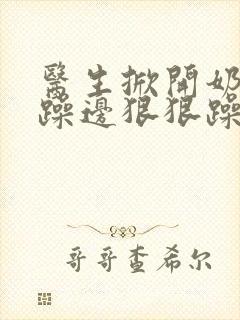 醫生掀開奶
躁邊狠狠躁
哥哥查希尔